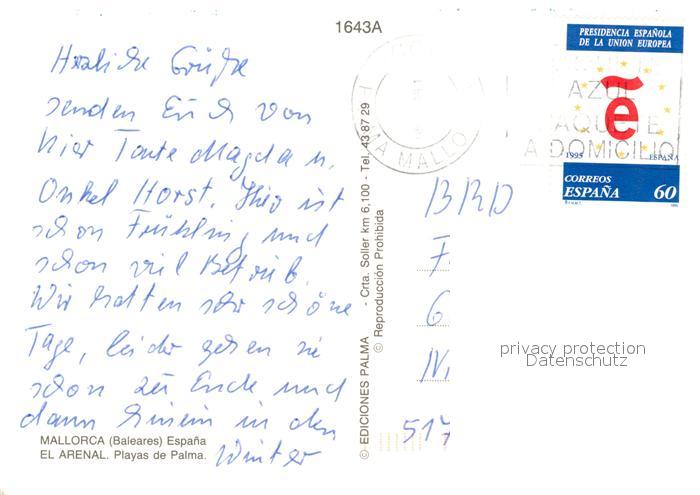 1643A
Herzliche Grüße
senden Euch von
hier Tante Magda u.
Onkel Horst. Hier ist
schon Frühling und
schon viel Betrieb.
Wir hatten sehr schöne
Tage, leider gehen sie
schon zu Ende und
dann hinein in den
Winter
MALLORCA (Baleares) España
EL ARENAL. Playas de Palma.
© EDICIONES PALMA - Crta. Soller km 6,100 - Tel. 43 87 29
© Reproducción Prohibida
PRESIDENCIA ESPAÑOLA
DE LA UNION EUROPEA
ẽ
1995 ESPAÑA
CORREOS
ESPAÑA 60
MA MALLO
AZUL
A DOMICILIO
BRD
517
privacy protection
Datenschutz